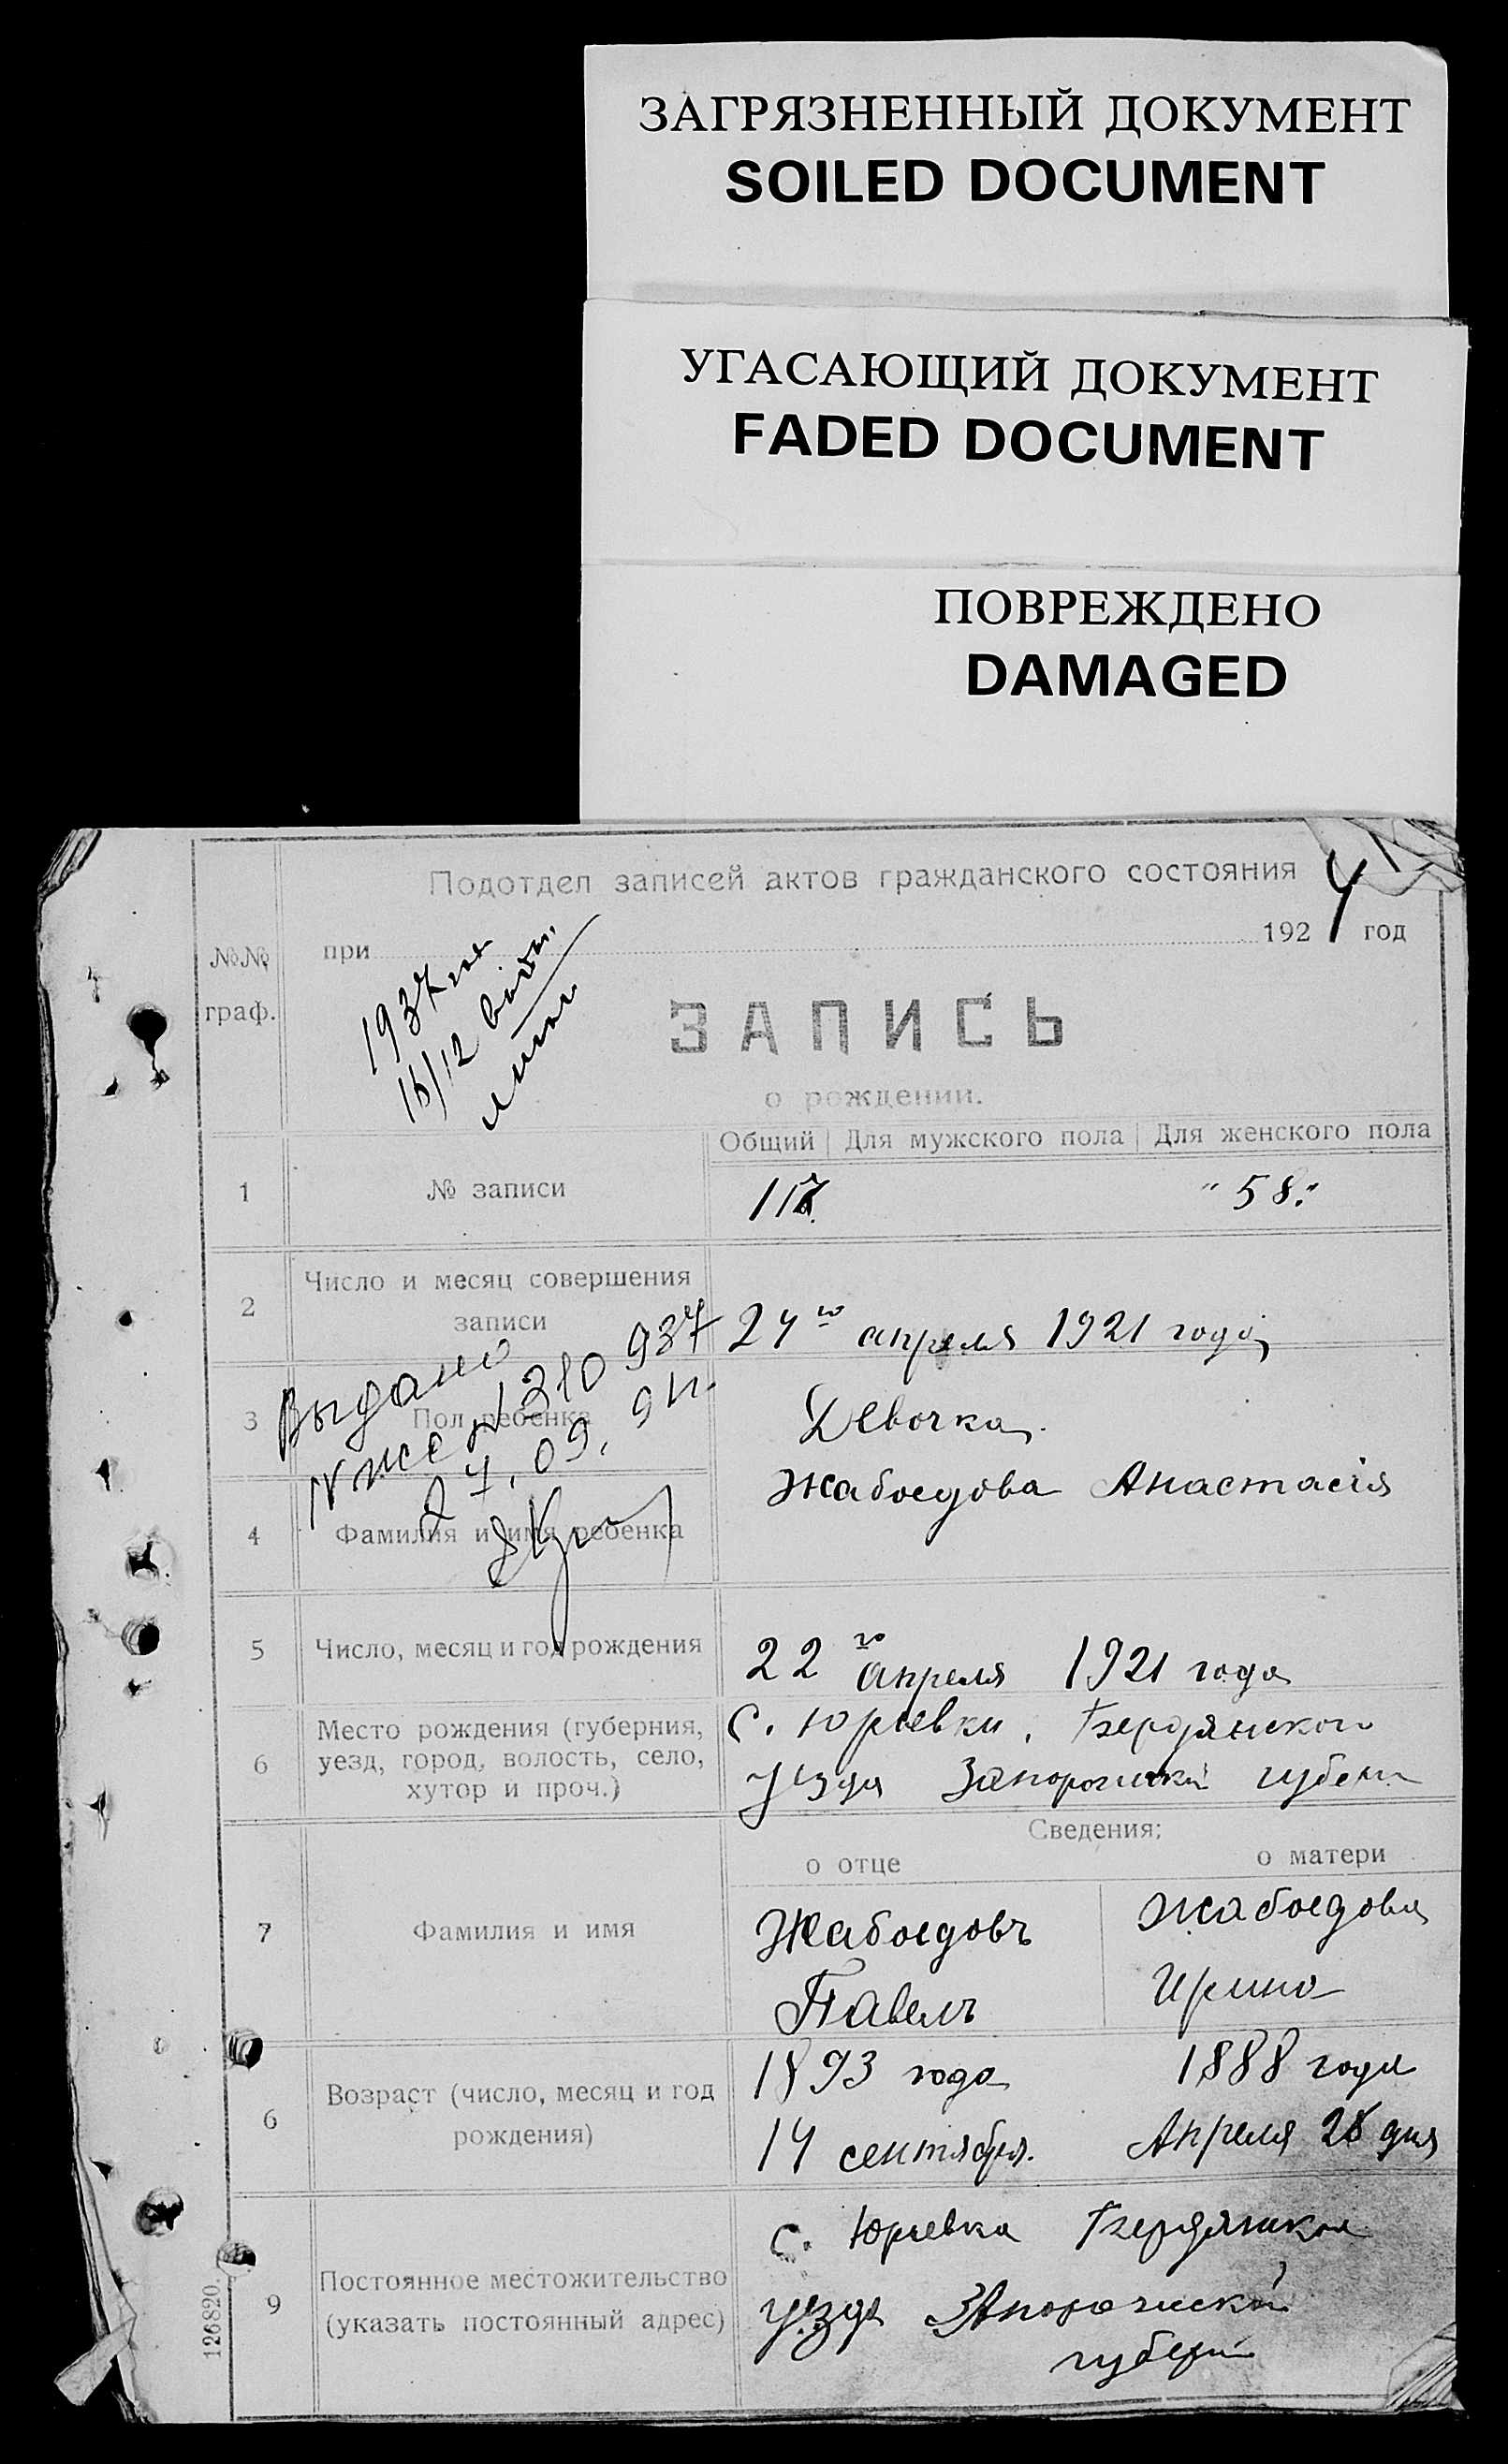 ЗАГРЯЗНЕННЫЙ ДОКУМЕНТ
SOILED DOCUMENT
УГАСАЮЩИЙ ДОКУМЕНТ
FADED DOCUMENT
ПОВРЕЖДЕНО
DAMAGED
Подотдел записей актов гражданского состояния
при 192 год
№№
граф.
1937
16/12
ЗАПИСЬ
о рождении.
Общий Для мужского пола Для женского пола
1 № записи "58."
2 Число и месяц совершения
записи
24го апреля 1921 года
Выдано
3 Пол ребенка Девочка
4 Фамилия и имя ребенка Жабоедова Анастасія
5 Число, месяц и год рождения 22го апреля 1921 года
6 Место рождения (губерния,
уезд, город, волость, село,
хутор и проч.)
с. Юрьевки, Бердянского
уезда Запорожской губерн
Сведения:
о отце о матери
7 Фамилия и имя
Жабоедовъ
Павелъ
Жабоедова
Ирина
6 Возраст (число, месяц и год
рождения)
1893 года
14 сентября.
1888 года
Апреля 28 дня
9 Постоянное местожительство
(указать постоянный адрес)
с. Юрьевка Бердянскаго
уезда Запорожской
губерн
126820.